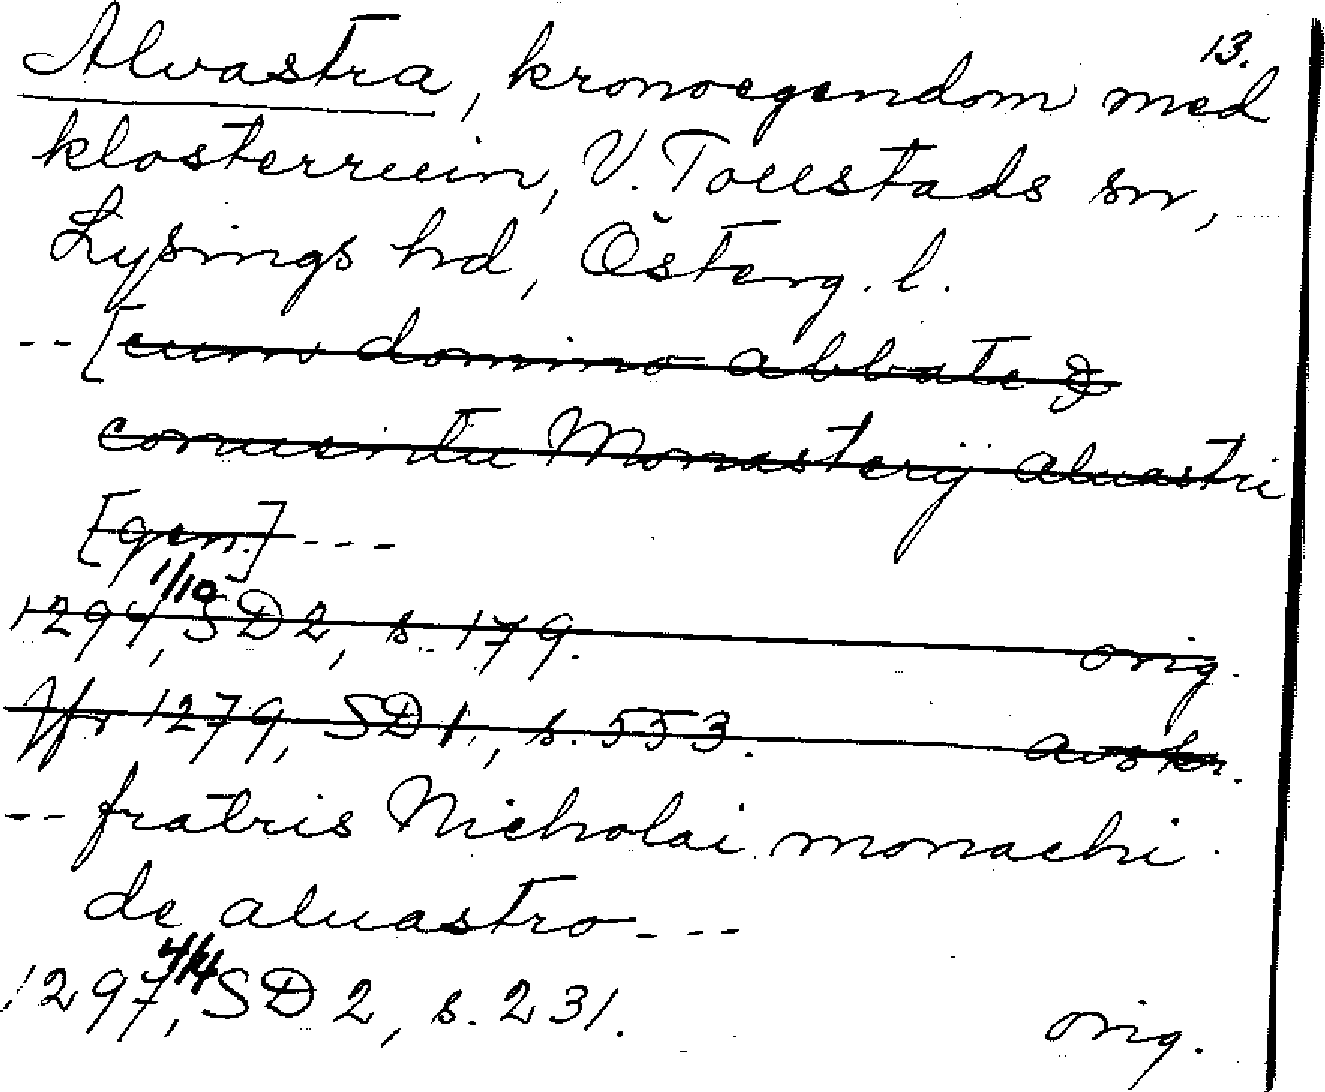 13.
Alvastra, kronoegendom med
klosterruin, V. Tollstads sn,
Lysings hd, Österg. l.
-- [cum domino abbate &
conuentu Monasterij aluastri
[gen.] ---
1294 1/10, SD 2, s. 179. orig.
Jfr 1279, SD 1, s. 553. avskr.
-- fratris Nicholai monachi
de aluastro ---
1297 4/4, SD 2, s. 231. orig.